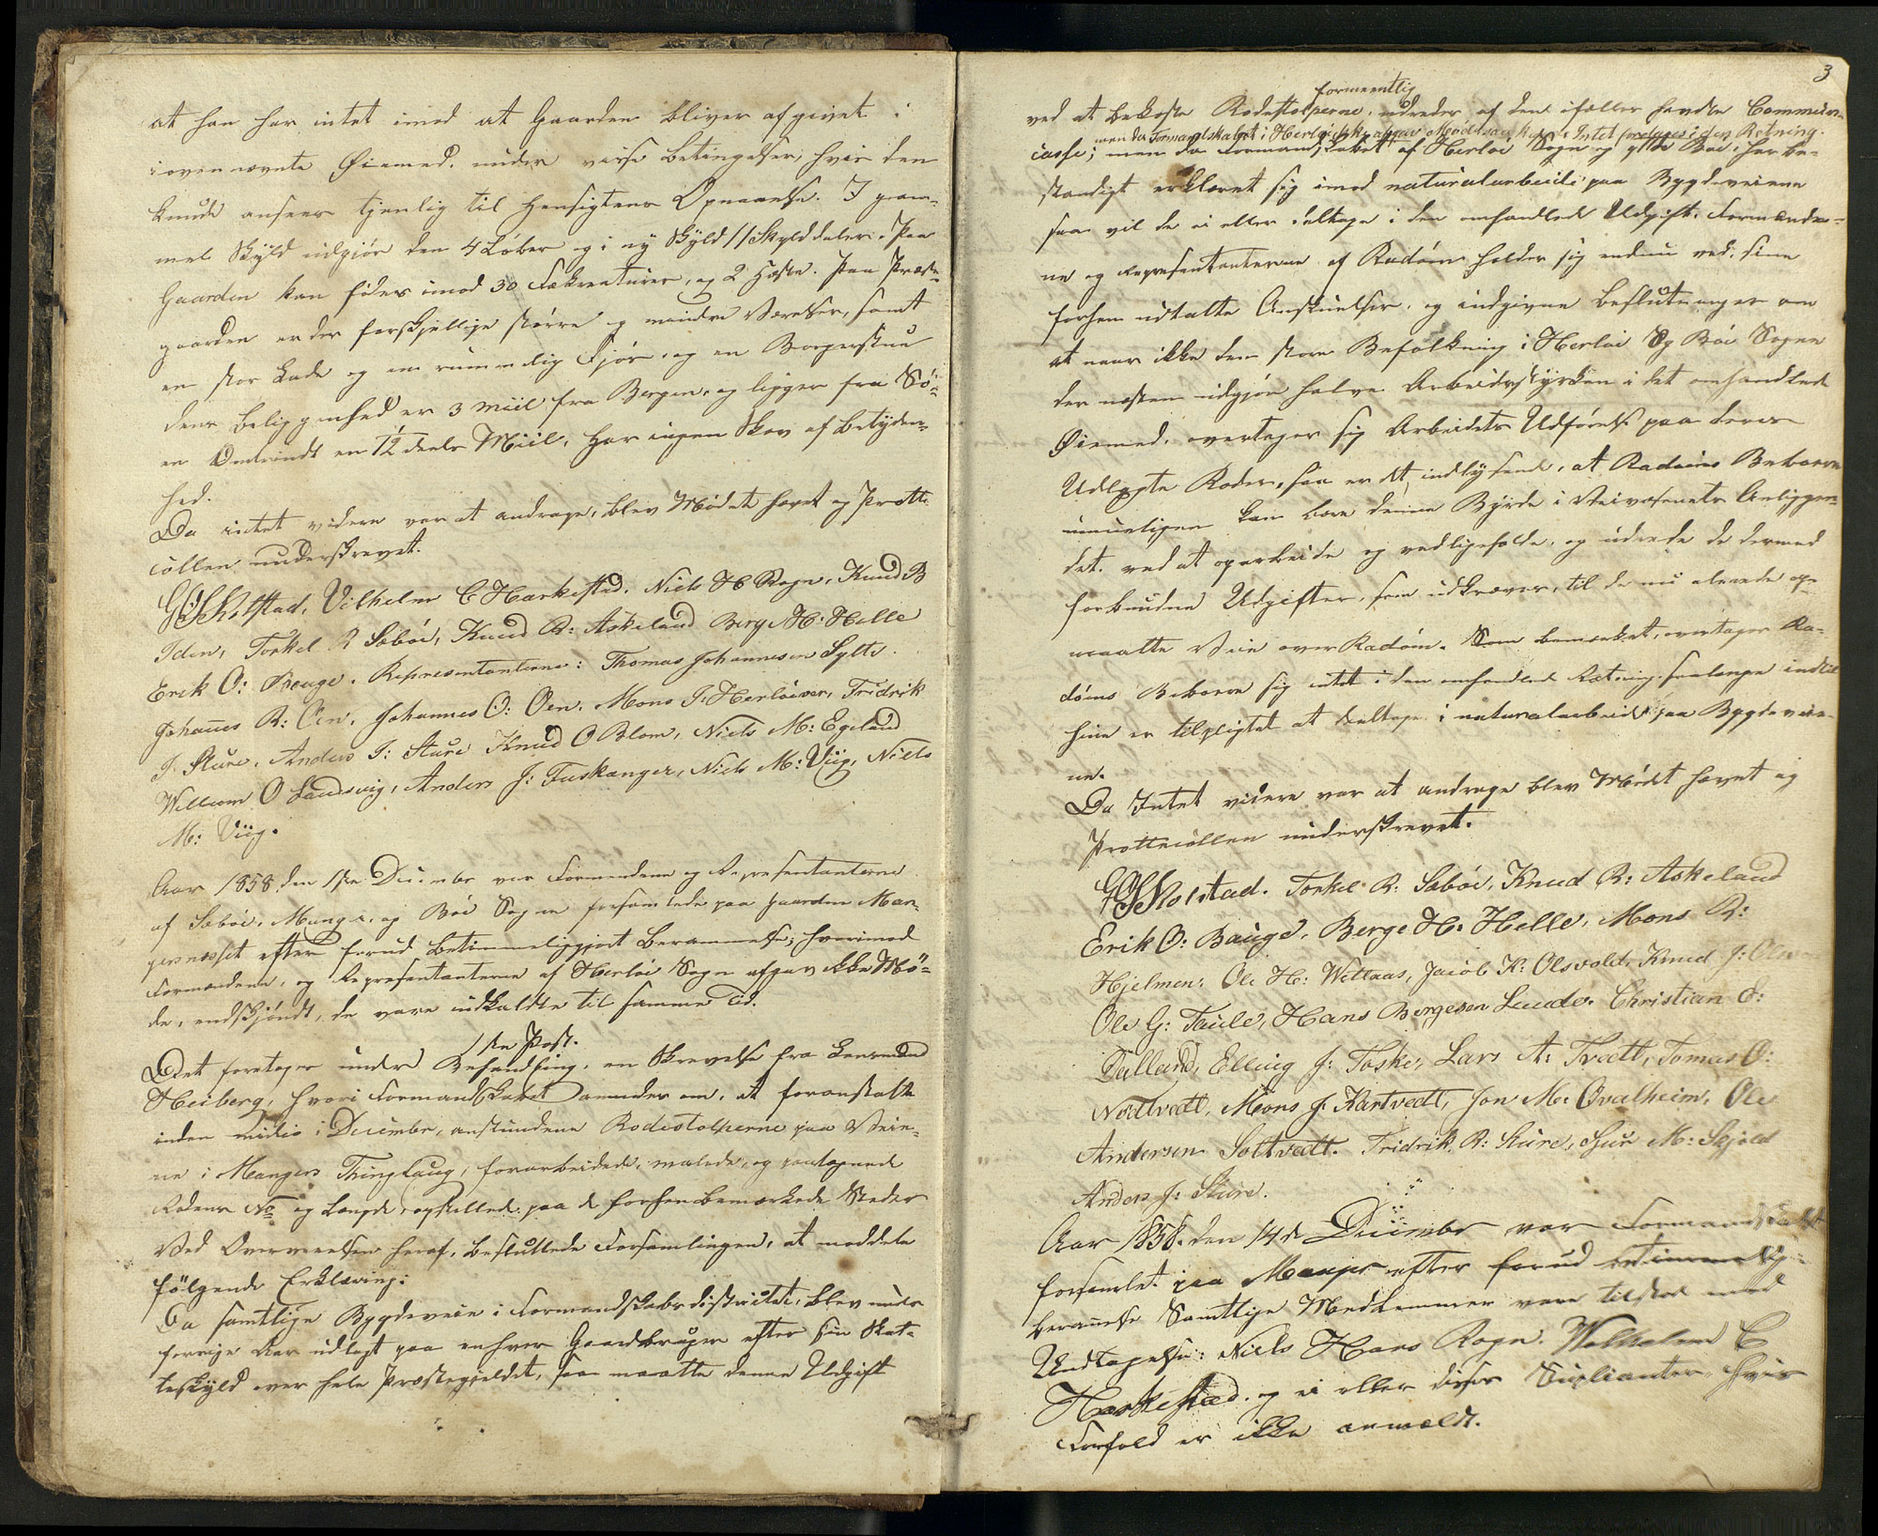 at han har intet imod at Gaarden bliver afgivet i
ovennævnte Øiemed. under visse Betingelser, hvis den
kunde ansees tjenlig til Hensigtens Opnaaelse. I gam-
mel Skyld udgjør den 4 Løber og i ny Skyld 11 Skylddaler. Paa
Gaarden kan fødes imod 30 Fækreaturer, og 2 Heste. Paa Præste-
gaarden er der forskjellige større og mindre Værelser, samt
en stor Lade og en rummelig Fjøs, og en Borgerstuu
dens Beliggenhed er 3 Miil fra Bergen, og ligger fra Sø-
en Omtrindt en 12 deels Miil, har ingen Skov af Betyden-
hed.
Da intet videre var at andrage, blev Mødet hævet og Protto-
collen underskrevet.
Skolstad, Vilhelm C Harkestad. Niels H Rogn, Knud B
Iden, Torkel R Sæbøe, Knud R: Askeland Berge H: Helle
Erik O: Bouge. Representanterne: Thomas Johannesen Sylte.
Johanes R: Oen. Johannes O: Oen. Mons J: Herløever, Fridrik
J. Sture, Anders J: Sture Knud O Blom, Niels M: Egeland
Willum O Landsvig, Anders J: Tuskanger, Niels M: Viig, Niels
M: Viig.
Aar 1858 den 1ste December var Formendene og Representanterne
af Sæbøe, Manger, og Bøe Sogne forsamlede paa gaarden Man-
gersnæsset efter forud betimmeliggjort Berammelse; hvorimod
Formændene, og Representanterne af Herløe Sogn afgav ikke Mø-
de, endskjøndt, de vare indkaldte til samme Tid.
1ste Post.
Det foretages under Behandling, en Skrevelse fra Lensmand
Heiberg, hvori Formandskabet anmodes om, at foranstalte
inden midio i December, anskundene Rodestolperne paa Veie-
ne i Mangers Thinglaug, forarbeidede, malede, og paategnede
Rodens No og Længde, opstillede paa de forhen bemærkede Steder
Ved Overveielsen heraf, besluttede Forsamlingen, at meddele
følgende Erklæring:
Da samtlige Bygdeveie i Formandskabsdistrictet, blev under
forrige Aar udlagt paa enhver Gaardbruger efter sin Skat-
teskyld over hele Præstegjeldet, saa maatte denne Udgift
3
formeentlig
ved at bekoste Rodestolperne, udredes af den ifælles havdte Commune-
men da Formandskabet i Herløe Intet i den Retning.
casse; men da Formandskabet af Herløe Sogn og ytte Bøe har be-
standigt erklæret sig imod naturalarbeide paa Bygdeveiene
saa vil de ei eller deltage i den omhandlede Udgift. Formænde-
ne og Representanterne af Radøen holder sig endnu ved, sine
forhen udtalte Anskuelser, og indgivne Beslutninger om
at naar ikke den store Befolkning i Herløe og Bøe Sogne
der næsten udgjør halve Arbeidsstyrken i det omhandlede
Øiemed, overtager sig Arbeidets Udførelse paa deres
Udlagte Roder, saa er det, indlysende, at Radøens Beboere
umueligen kan bære denne Byrde i Veivæsenets Anliggen-
det. ved at oparbeide og vedligeholde, og udrede de dermed
forbundne Udgifter, som udkræves, til de nu alerede op-
maalte Veie over Radøen. Som bemærket, overtager Ra-
døens Beboere sig intet i den omhandlede Retning, saalenge indtil
hine er tilpligtet at deeltage i naturalarbeidet paa Bygdeveie-
ne.
Da Intet videre var at andrage blev Mødet hævet og
Prottocollen underskrevet.
Skolstad. Torkel R: Sæbøe, Knud R: Askeland
Erik O: Bauge, Berge H: Helle, Mons R:
Hjelmen, Ole H: Wettaas, Jacob K: Olsvold, Knud J:
Ole G: Taule, Hans Bergesen Lunde. Christian O:
Dalland, Elling J: Toske, Lars A: Tvedt, Tomas O:
Nordtvedt, Mons J. Kartvedt, Jon M: Qvalheim, Ole
Andersen Soltvedt. Fridrik R: Sture, Siur M: Skjold
Anders J: Sture.
Aar 1858. den 14de December var Formandskabet
forsamlet paa Manger efter forud betimmelig-
Beramelse Samtlige Medlemmer vare tilstæde med
Undtagelse: Niels Hans Rogn. Wilhelm C
Harkestad. og ei eller disses Suplianter, hvis
Forfald er ikke anmeldt.